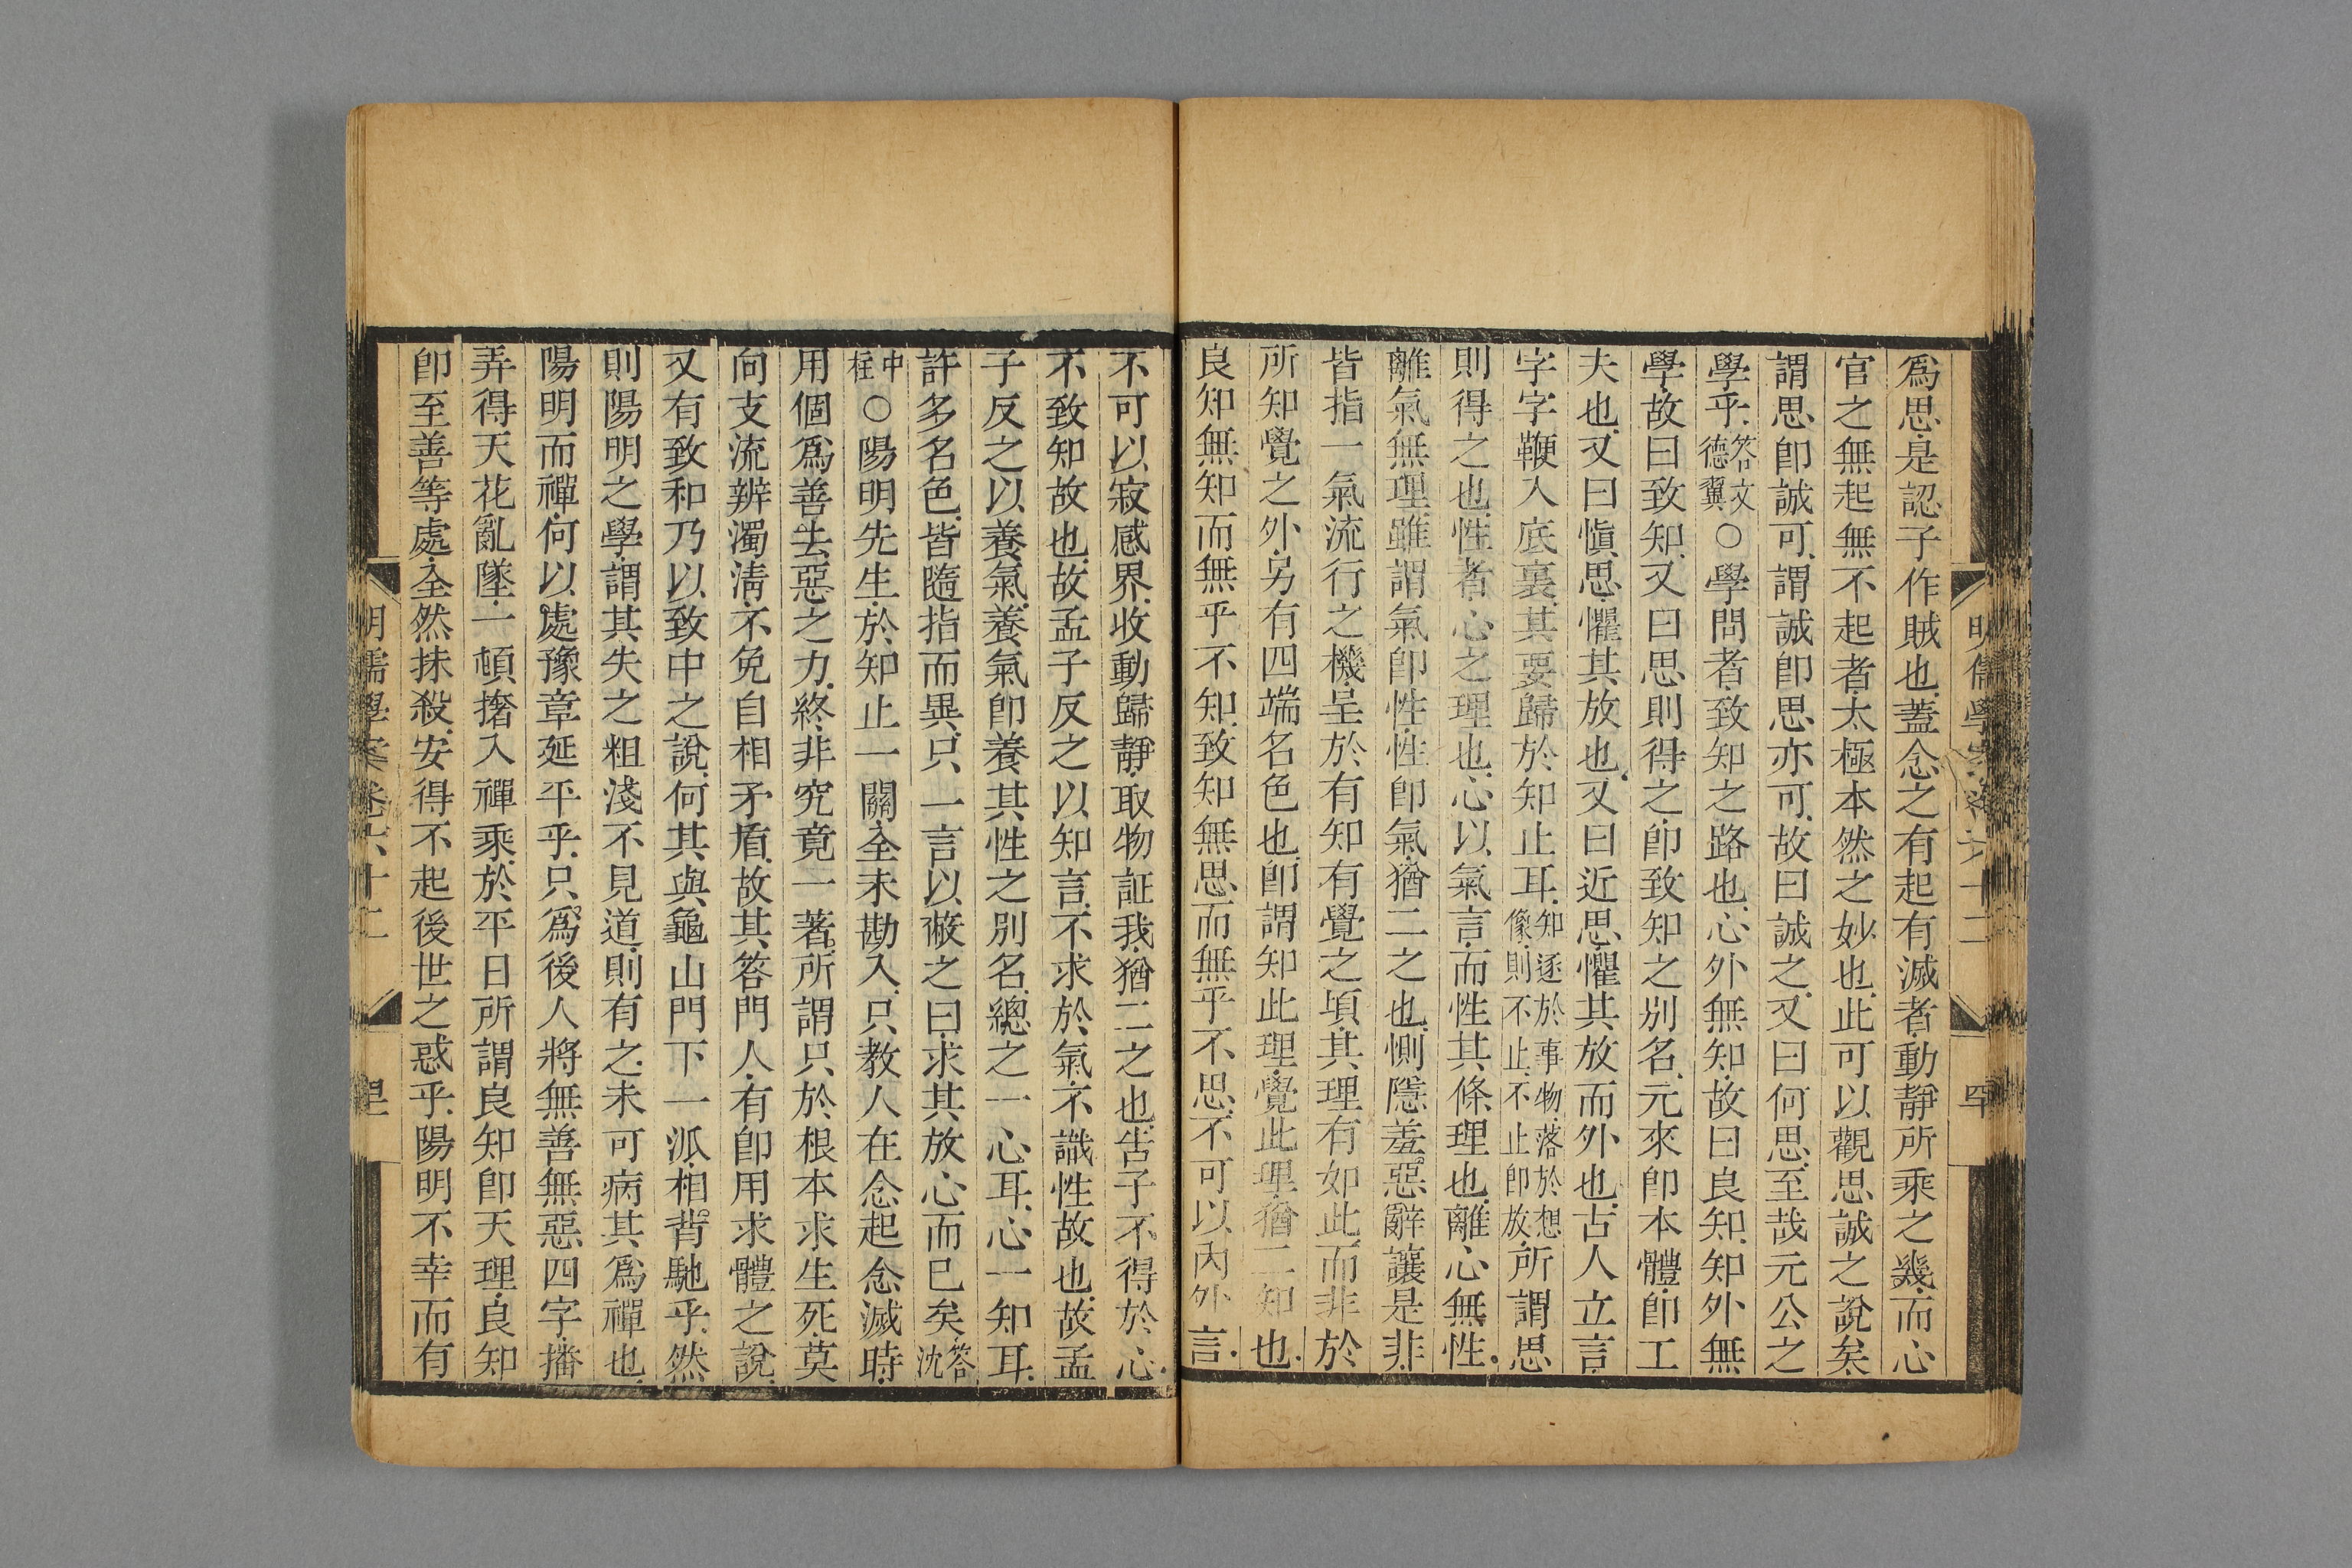 明儒學案卷六十二
爲思是認子作賊也蓋念之有起有滅者動靜所乘之幾而心
官之無起無不起者太極本然之妙也此可以觀思誠之說矣
謂思卽誠可謂誠卽思亦可故曰誠之又曰何思至哉元公之
學乎答文德翼○學問者致知之路也心外無知故曰良知知外無
學故曰致知又曰思則得之卽致知之別名元來卽本體卽工
夫也又曰愼思懼其放也又曰近思懼其放而外也古人立言
字字鞭入底裏其要歸於知止耳知逐於事物落於想像則不止不止卽放所謂思
則得之也性者心之理也心以氣言而性其條理也離心無性
離氣無理雖謂氣卽性性卽氣猶二之也惻隱羞惡辭讓是非
皆指一氣流行之機呈於有知有覺之頃其理有如此而非於
所知覺之外另有四端名色也卽謂知此理覺此理猶二知也
良知無知而無乎不知致知無思而無乎不思不可以內外言
不可以寂感界收動歸靜取物証我猶二之也告子不得於心
不致知故也故孟子反之以知言不求於氣不識性故也故孟
子反之以養氣養氣卽養其性之別名總之一心耳心一知耳
許多名色皆隨指而異只一言以蔽之曰求其放心而已矣答沈
中柱○陽明先生於知止一關全未勘入只教人在念起念滅時
用個爲善去惡之力終非究竟一著所謂只於根本求生死莫
向支流辨濁淸不免自相矛盾故其答門人有卽用求體之說
又有致和乃以致中之說何其與龜山門下一派相背馳乎然
則陽明之學謂其失之粗淺不見道則有之未可病其爲禪也
陽明而禪何以處豫章延平乎只爲後人將無善無惡四字播
弄得天花亂墜一頓撦入禪乘於平日所謂良知卽天理良知
卽至善等處全然抹殺安得不起後世之惑乎陽明不幸而有
明儒學案卷六十二